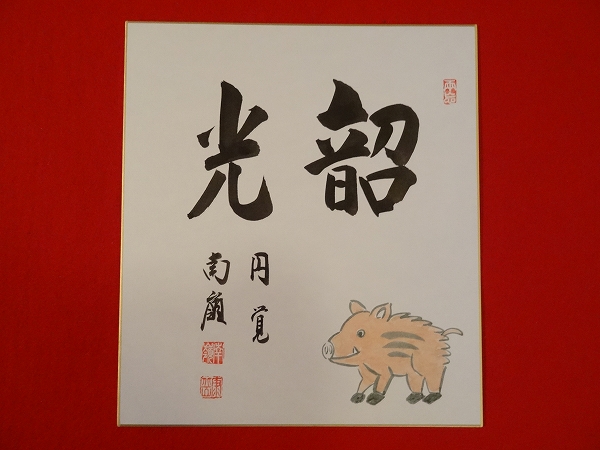 韶光
円覚
南嶺